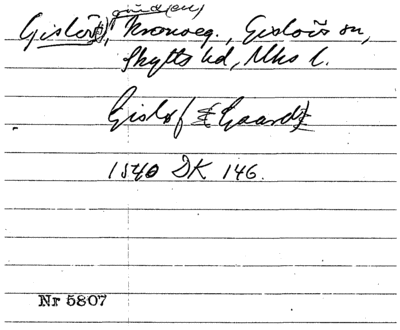 gård(en)
Gislöv(s), kronoeg., Gislövs sn,
Skytts hd, Mhs l.
Gislof {Gaard}
1540 DK 146.
Nr 5807